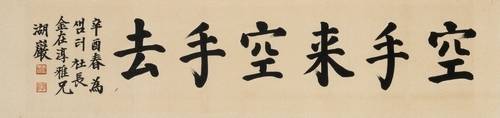 空手来空手去
辛酉春 為
샘터社長
金在淳雅兄
湖巖